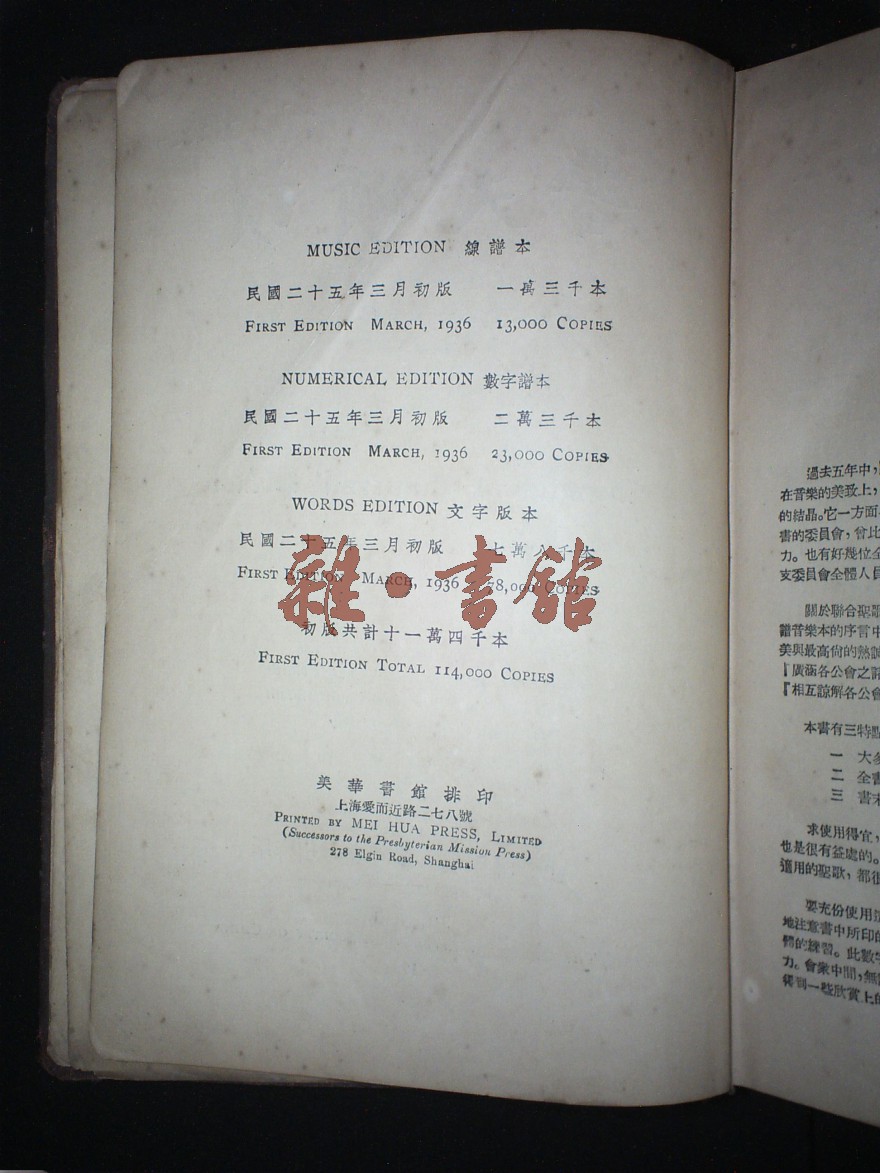 MUSIC EDITION 線譜本
民國二十五年三月初版 一萬三千本
FIRST EDITION MARCH, 1936 13,000 COPIES
NUMERICAL EDITION 數字譜本
民國二十五年三月初版 二萬三千本
FIRST EDITION MARCH, 1936 23,000 COPIES
WORDS EDITION 文字版本
民國二十五年三月初版 七萬八千本
FIRST EDITION MARCH, 1936 78,000 COPIES
雜·書館
初版共計十一萬四千本
FIRST EDITION TOTAL 114,000 COPIES
美華書館排印
上海愛而近路二七八號
PRINTED BY MEI HUA PRESS, LIMITED
(Successors to the Presbyterian Mission Press)
278 Elgin Road, Shanghai
過去五年中,
在音樂的美致上,
的結晶。它一方面
書的委員會,會比
力。也有好幾位全
支委員會全體人員
關於聯合聖歌
譜音樂本的序言中
美與最高尚的熱誠
「廣涵各公會之
『相互諒解各公會
本書有三特點
一 大多
二 全書
三 書末
求使用得宜,
也是很有益處的。
適用的聖歌,都很
要充份使用
地注意書中所印的
體的練習。此數字
力。會衆中間,無
得到一些欣賞上的